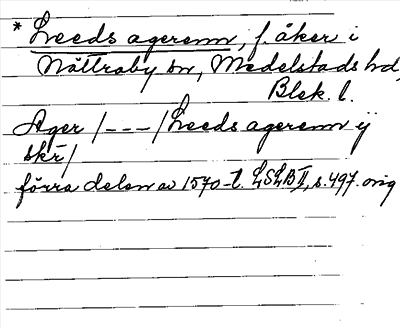 * Leeds agerenn, f. åker i
Nättraby sn, Medelstads hd,
Blek. l.
Ager /---/ Leeds agerenn ij
skr̄/
förra delen av 1570-t. LSLB II, s. 497. orig